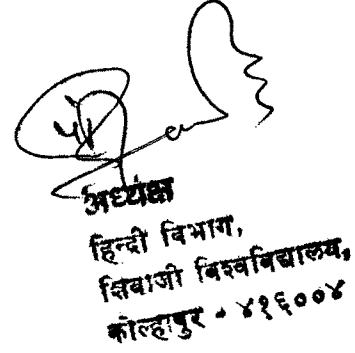 अध्यक्ष
हिन्दी विभाग,
शिवाजी विश्वविद्यालय,
कोल्हापुर - ४१६००४